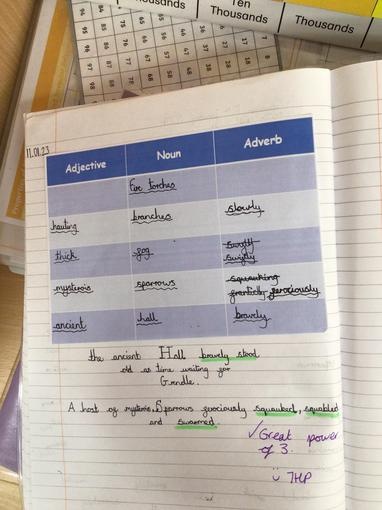 Ten
Thousands
Thousands
11.01.23
Adjective Noun Adverb
Fire torches
hauting branches slowly
thick fog swiftly
swiftly
mysterois sparrows squawking
ferociously
ancient hall bravely
the ancient Hall bravely stood
old as time waiting for
Grendle.
A host of mysterois, Sparrows ferociously squauked, squabled
and swarmed.
✓ Great power
of 3.
THP